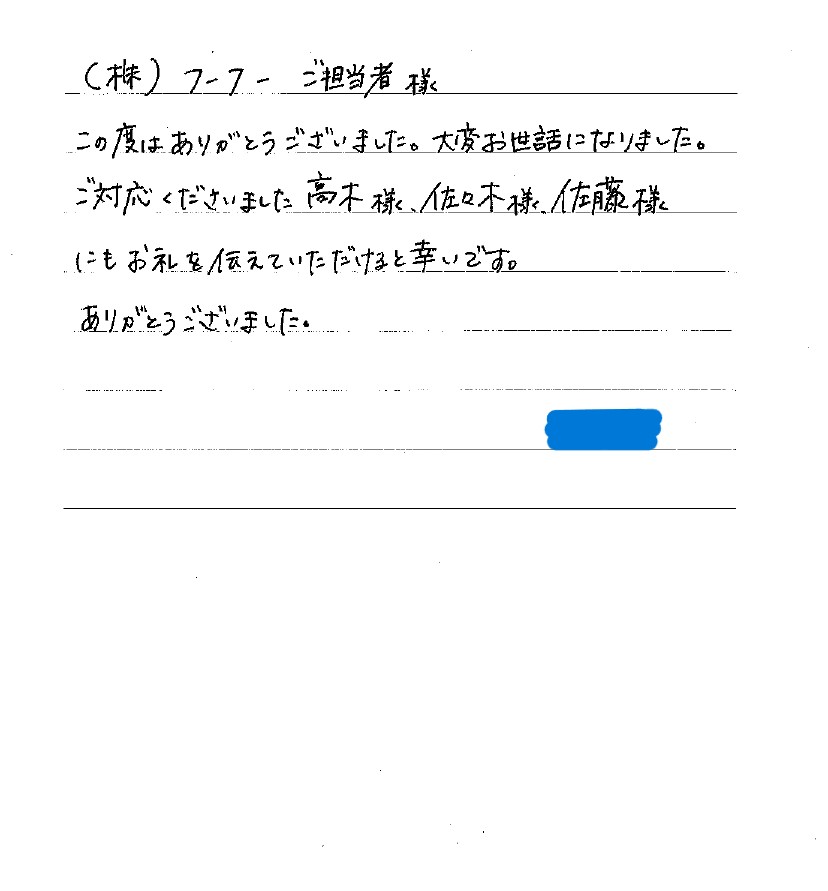 （株）フーフー ご担当者様
この度はありがとうございました。大変お世話になりました。
ご対応くださいました高木様、佐々木様、佐藤様
にもお礼を伝えていただけると幸いです。
ありがとうございました。